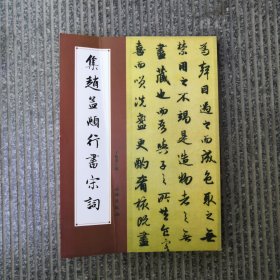 集趙孟頫行書宋詞
為聲目遇之而成色取之無
禁用之不竭是造物者之無
盡藏也而吾與子之所共食客
喜而笑洗盞更酌肴核既盡